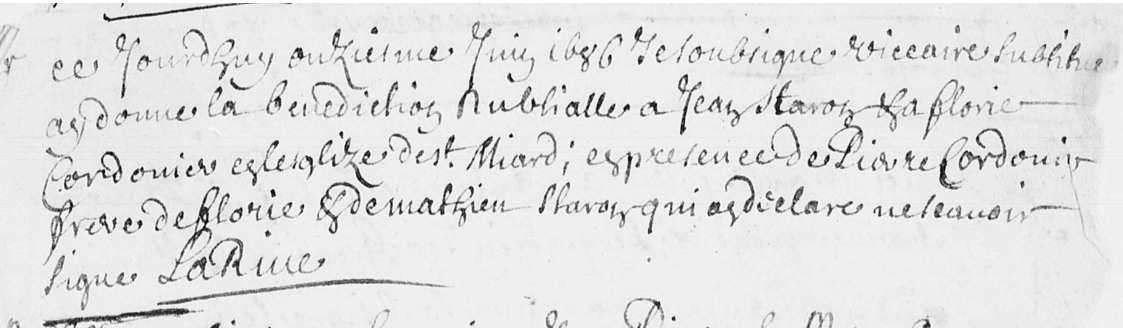 ce Jourdhuy onziesme Juin 1686 Je soubsigne viccaire substitue
ay donne la benediction Nubtialle a Jean Staron & a florie
Cordonier en lesglize de st. Miard; en presence de Pierre Cordonier
frere de florie & de mathieu Staron qui ay declare ne scavoir
signe LaRiue